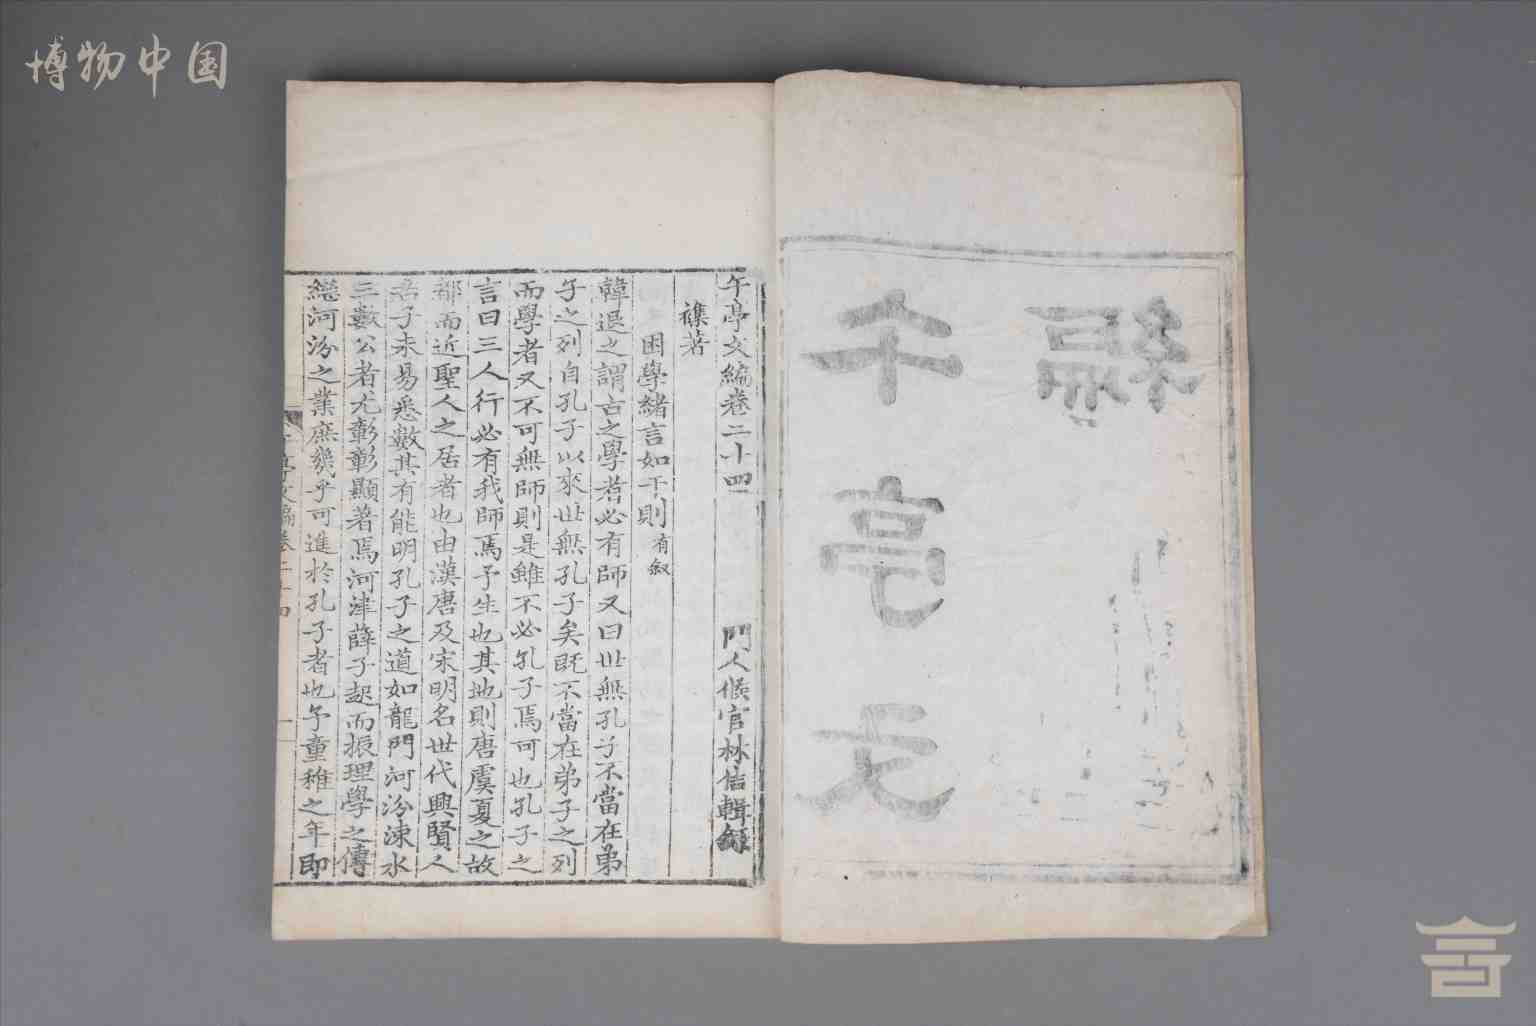 博物中国
午亭文
編
午亭文編卷二十四
門人候官林佶輯錄
襍著
困學緒言如干則有叙
韓退之謂古之學者必有師又曰世無孔子不當在弟
子之列自孔子以來世無孔子矣既不當在弟子之列
而學者又不可無師則是雖不必孔子焉可也孔子之
言曰三人行必有我師焉予生也其地則唐虞夏之故
都而近聖人之居者也由漢唐及宋明名世代興賢人
君子未易悉數其有能明孔子之道如龍門河汾涑水
三數公者尤彰彰顯著焉河津薛子起而振理學之傳
繼河汾之業庶幾乎可進於孔子者也予童稚之年即
午亭文編卷二十四